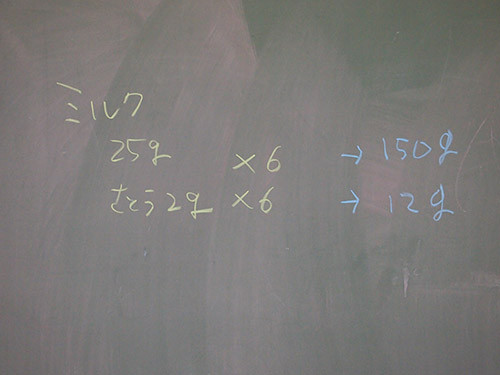 ミルク
25g ×6 → 150g
さとう2g ×6 → 12g